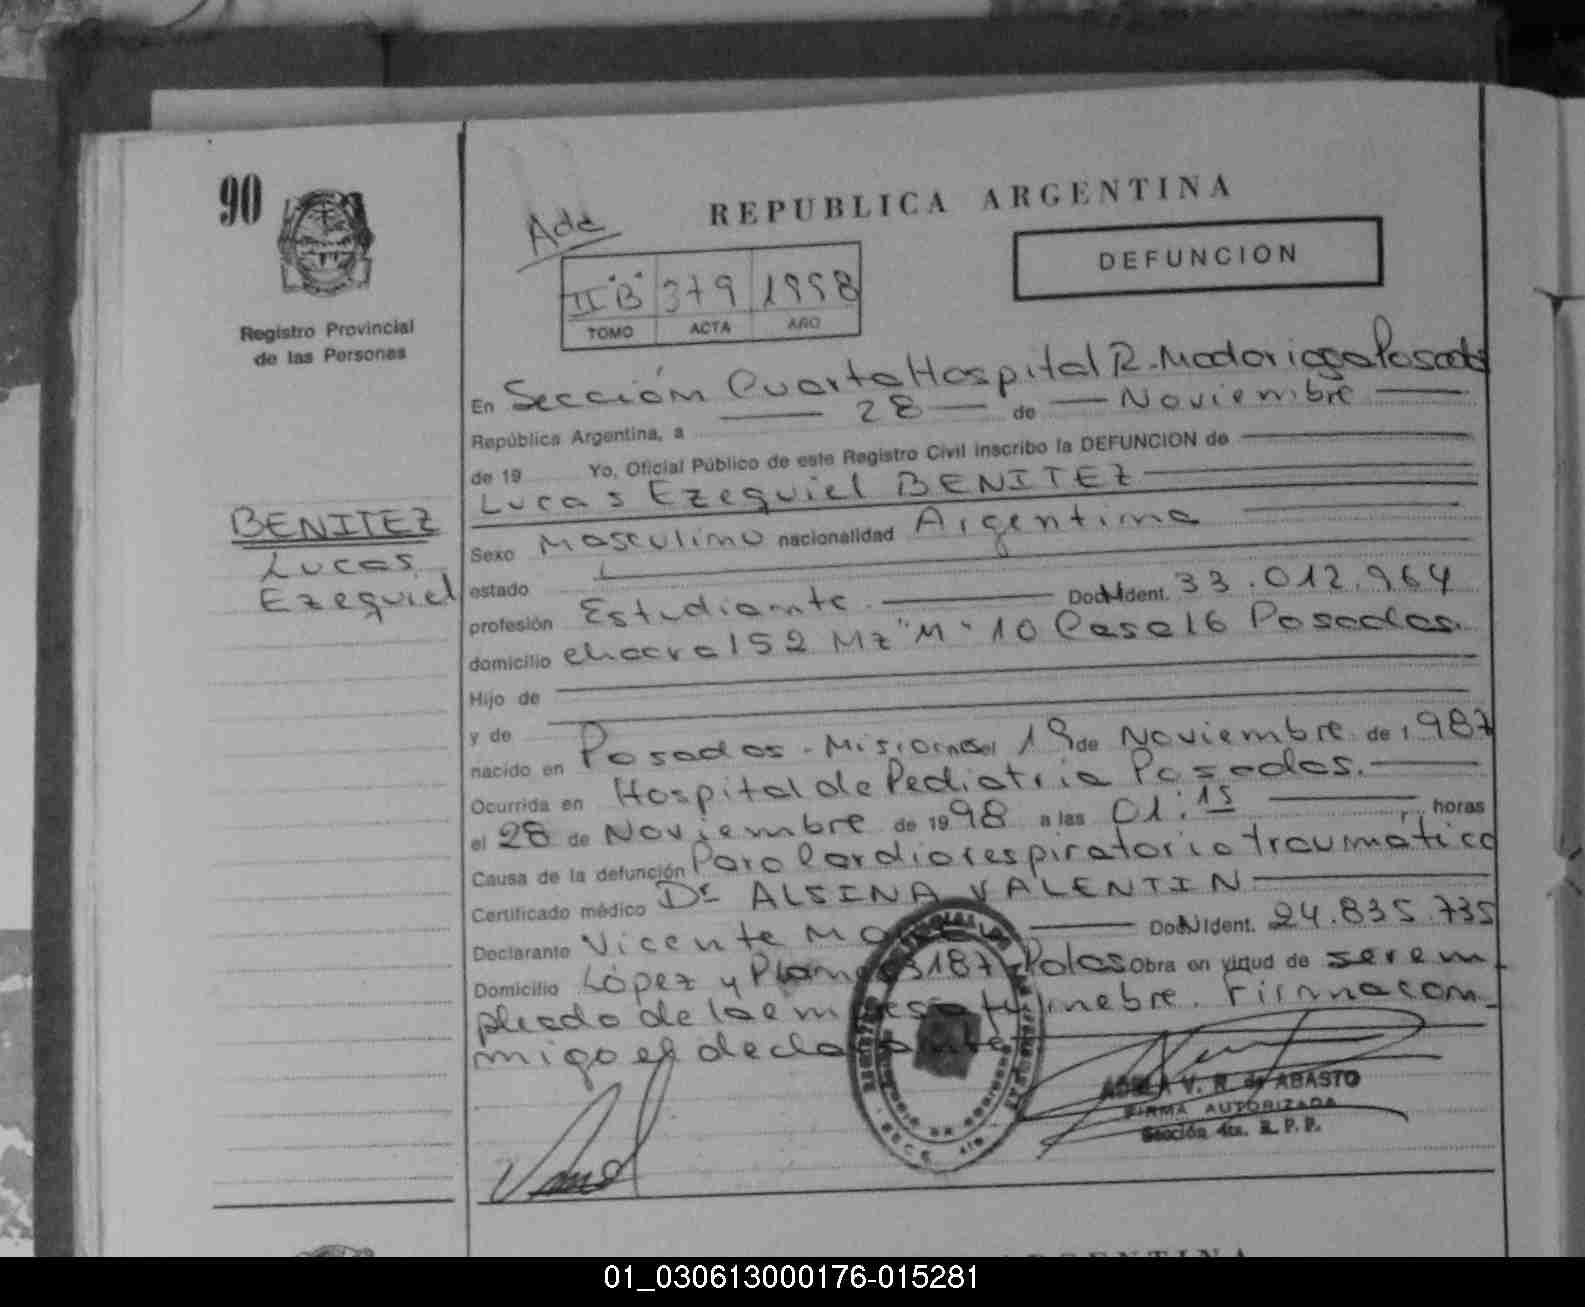 90
REPUBLICA ARGENTINA
DEFUNCION
II "B" 379 1998
TOMO ACTA AÑO
Registro Provincial
de las Personas
BENITEZ
Lucas
Ezequiel
En Sección Cuarta Hospital R. Madariaga Posadas
República Argentina, a 28 de Noviembre
de 19 Yo, Oficial Público de este Registro Civil inscribo la DEFUNCION de
Lucas Ezequiel BENITEZ
Sexo Masculino nacionalidad Argentina
estado
profesión Estudiante. Doc. Ident. 33.012.964
domicilio chacra 152 Mz "M" 10 Casa 16 Posadas.
Hijo de
y de
nacido en Posadas - Misiones el 19 de Noviembre de 1987
Ocurrida en Hospital de Pediatria Posadas.
el 28 de Noviembre de 1998 a las 01:15 horas
Causa de la defunción Paro Cardiorespiratorio traumatico
Certificado médico Dr ALSINA VALENTIN
Declarante Vicente Doc. Ident. 24.835.735
Domicilio López y Planes 3187 Pdas Obra en virtud de ser em
pleado de la empresa funebre. Firma con
migo el declarante
ADELA V. R. de ABASTO
FIRMA AUTORIZADA
Sección 4ta. R. P. P.
01_030613000176-015281